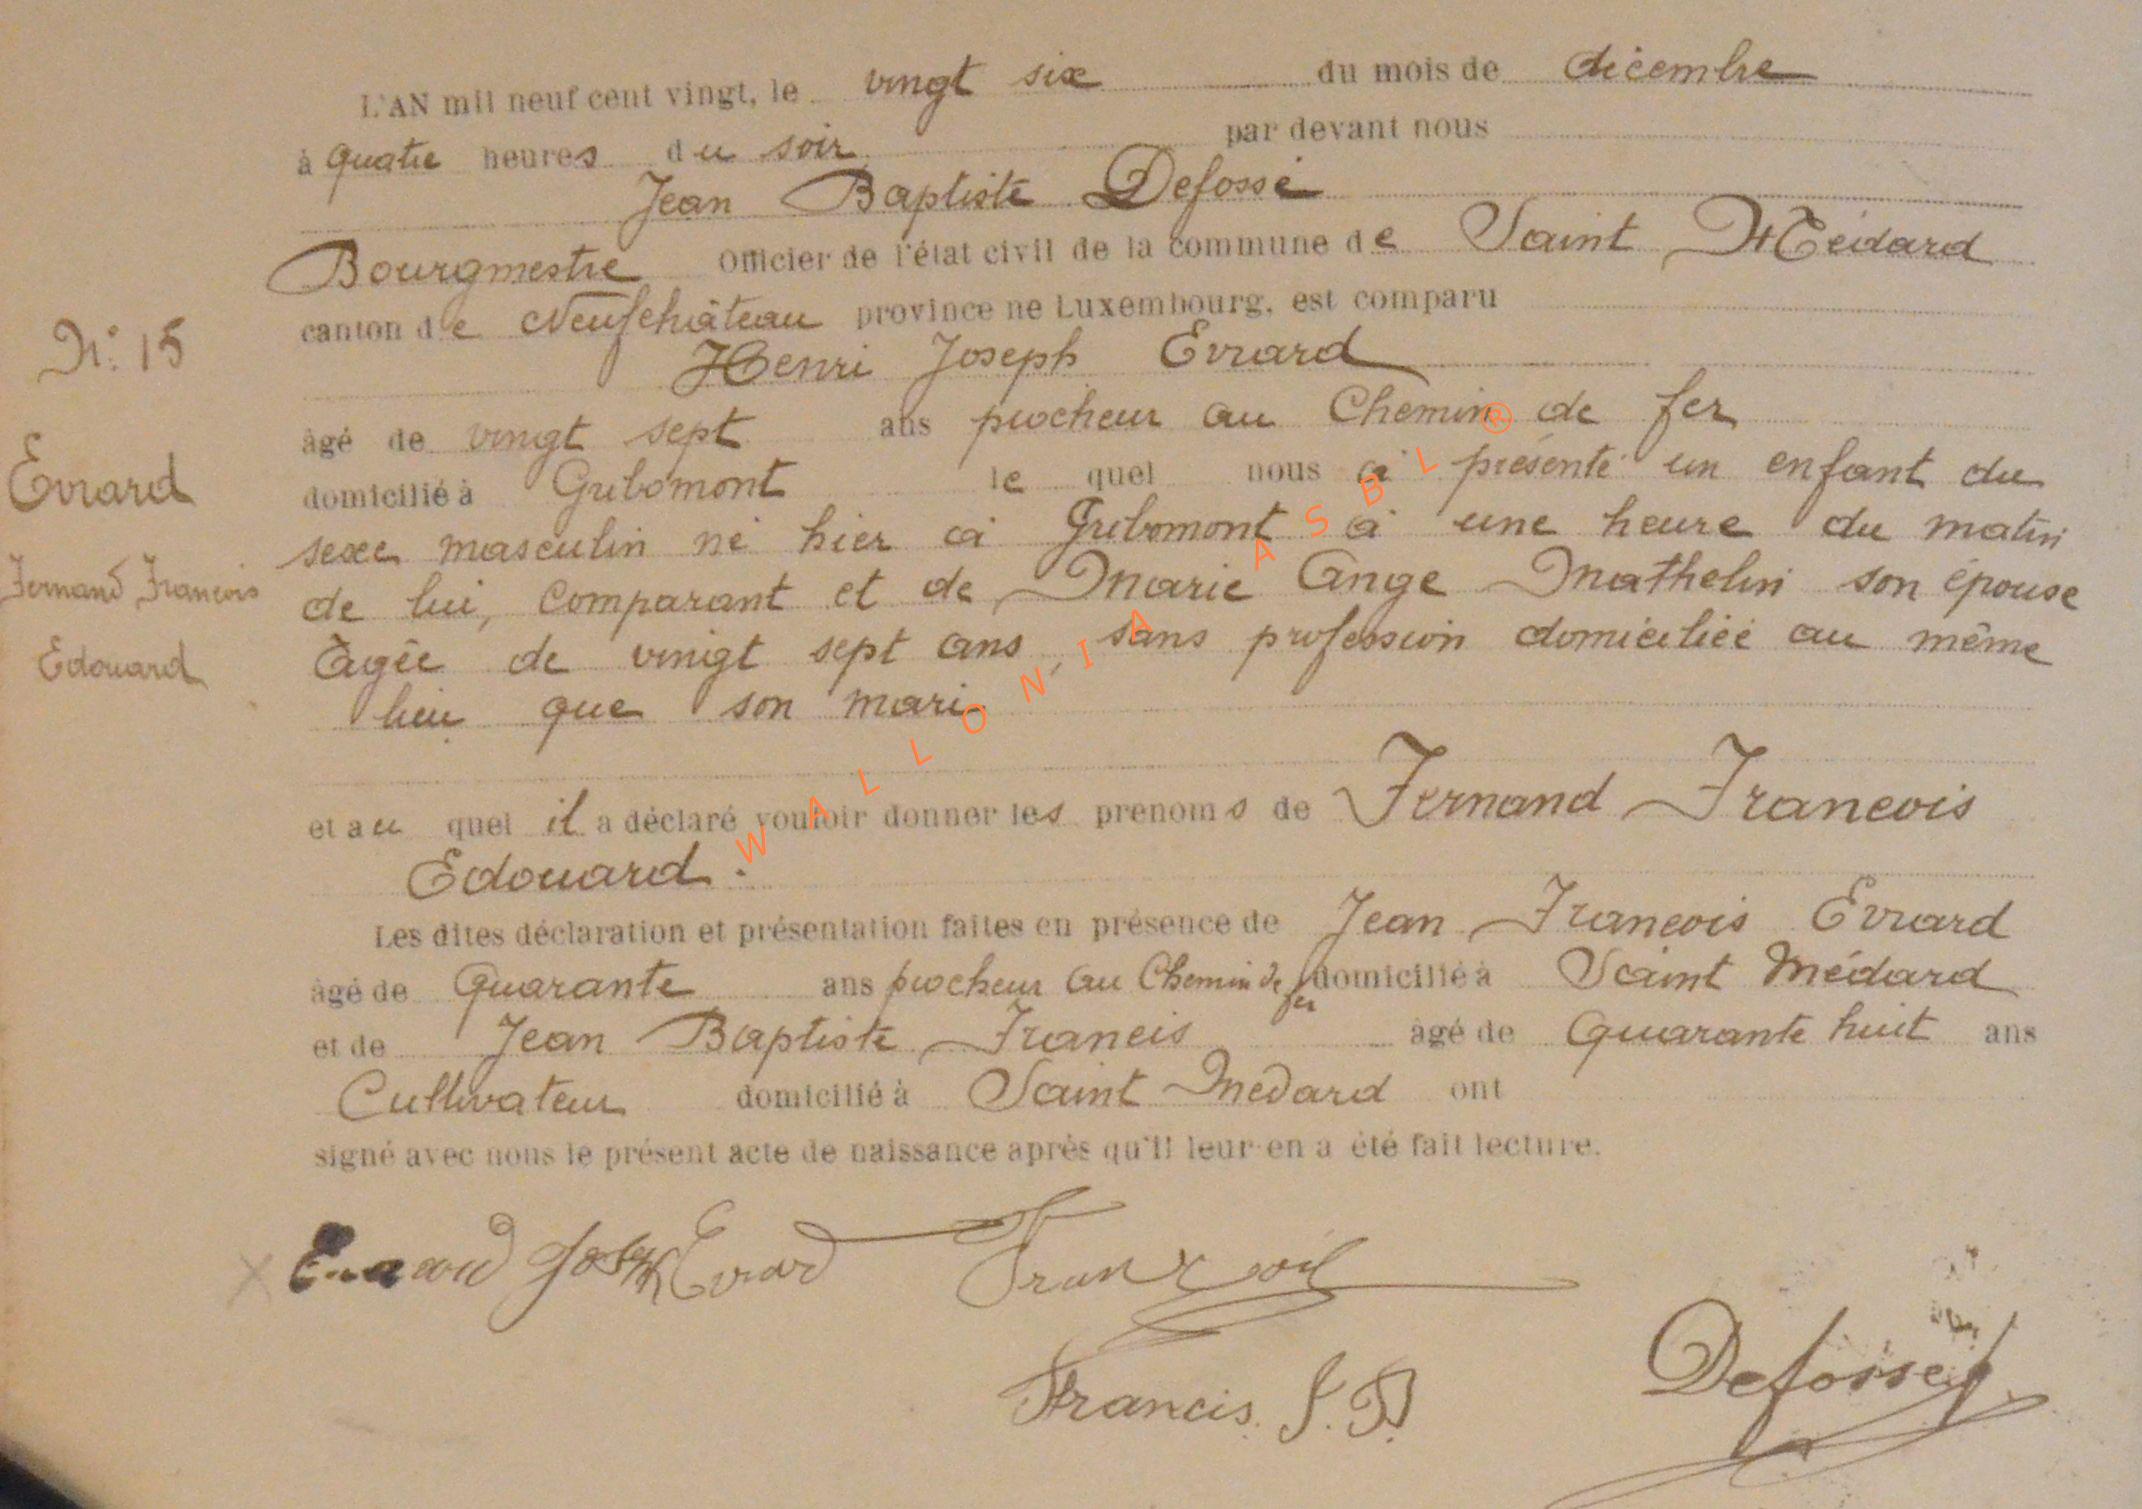 L'AN mil neuf cent vingt, le vingt six du mois de décembre
à quatre heures du soir par devant nous
Jean Baptiste Defossé
Bourgmestre officier de l'état civil de la commune de Saint Médard
canton de Neufchâteau province de Luxembourg, est comparu
Henri Joseph Evrard
âgé de vingt sept ans piocheur au Chemin de fer
domicilié à Gribomont le quel nous a présenté un enfant du
sexe masculin né hier à Gribomont à une heure du matin
de lui, comparant et de Marie Ange Mathelin son épouse
âgée de vingt sept ans, sans profession domiciliée au même
lieu que son mari
et au quel il a déclaré vouloir donner les prénoms de Fernand Francois
Edouard.
Les dites déclaration et présentation faites en présence de Jean Francois Evrard
âgé de Quarante ans piocheur au Chemin de fer domicilié à Saint Médard
et de Jean Baptiste Francis âgé de Quarante huit ans
Cultivateur domicilié à Saint Médard ont
signé avec nous le présent acte de naissance après qu'il leur en a été fait lecture.
N° 15
Evrard
Fernand Francois
Edouard
Evrard Joseph Evrard
Francis J. B.
Defossé
WALLONIA ASBL ®